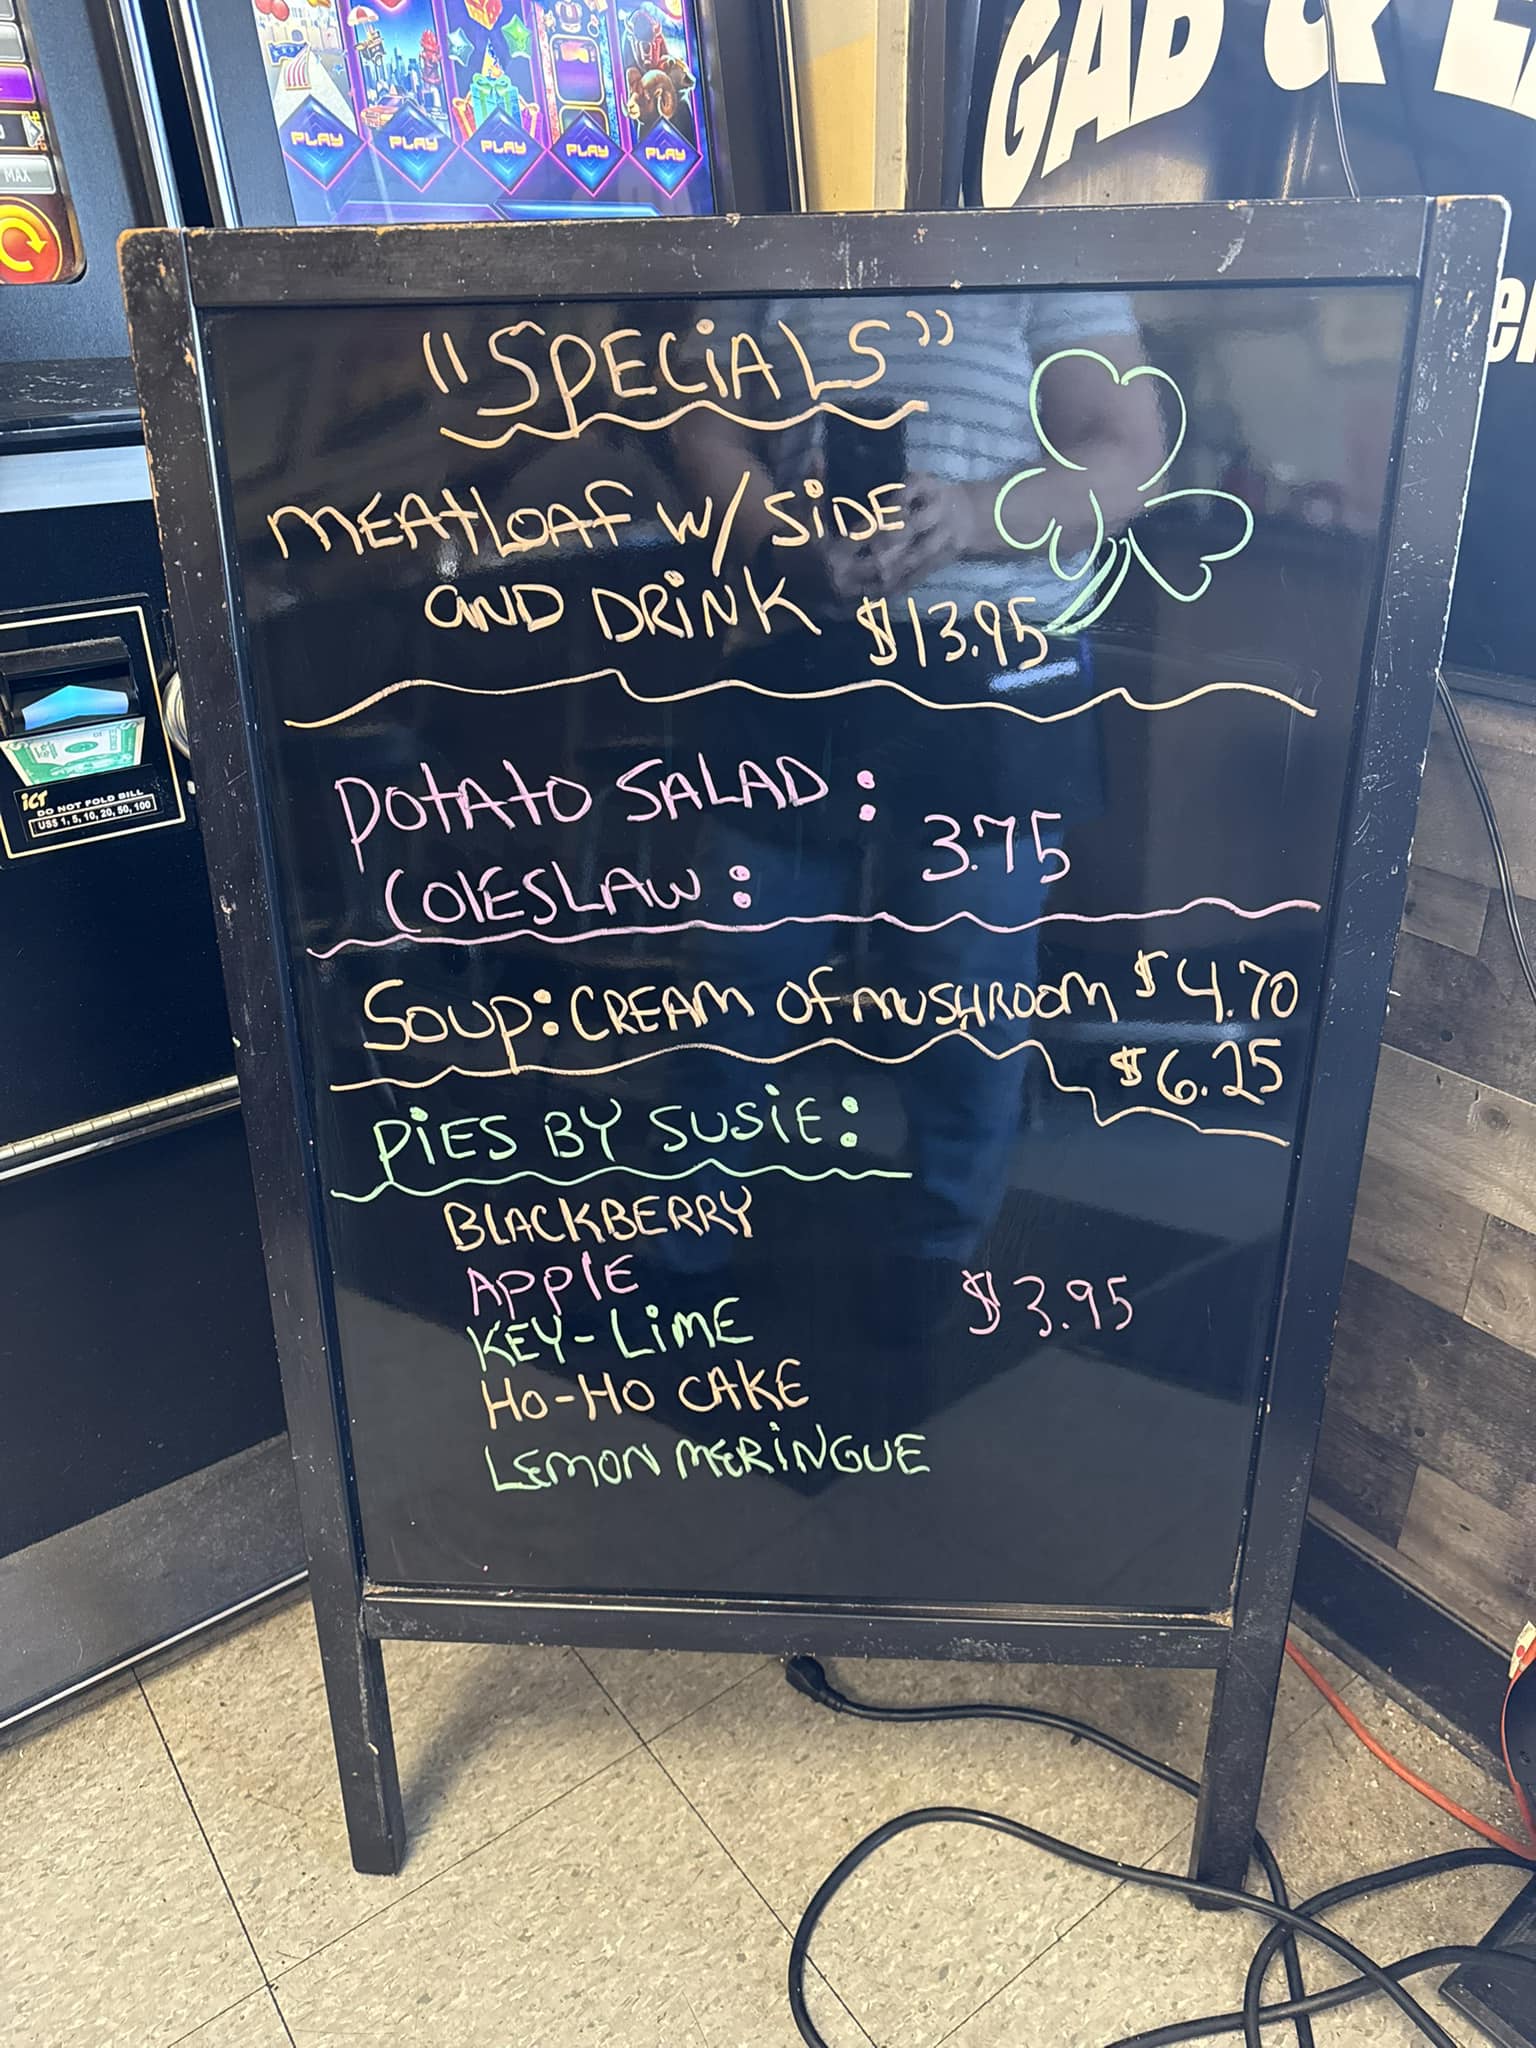 PLAY PLAY PLAY PLAY PLAY
MAX
GAB &
"SPECiALS"
MEATLOAF W/ SiDE
AND DRiNK $13.95
POTATO SALAD:
COlESLAW: 3.75
SOUP: CREAM OF MUSHROOM $4.70
$6.25
PiES BY SUSiE:
BLACKBERRY
APPlE
$3.95
KEY-LiME
HO-HO CAKE
LEMON MERiNGUE
iCT
DO NOT FOLD BILL
US$ 1, 5, 10, 20, 50, 100